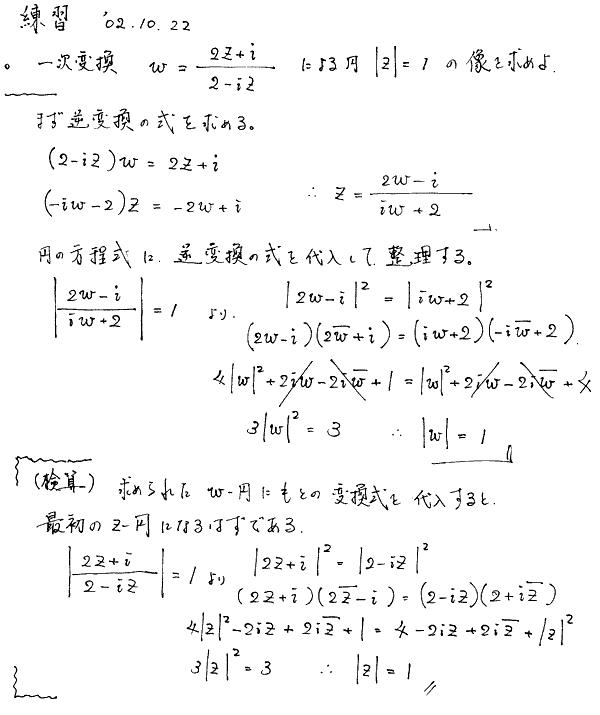 練習 '02.10.22
。一次変換 w = (2z+i)/(2-iz) による円 |z| = 1 の像を求めよ.
まず逆変換の式を求める。
(2-iz)w = 2z+i
(-iw-2)z = -2w+i ∴ z = (2w-i)/(iw+2)
円の方程式に、逆変換の式を代入して整理する。
|(2w-i)/(iw+2)| = 1 より. |2w-i|² = |iw+2|²
(2w-i)(2w̅+i) = (iw+2)(-iw̅+2).
4|w|²+2iw-2iw̅+1 = |w|²+2iw-2iw̅+4
3|w|² = 3 ∴ |w| = 1
(検算) 求められた w-円にもとの変換式を代入すると.
最初の z-円になるはずである.
|(2z+i)/(2-iz)| = 1 より |2z+i|² = |2-iz|²
(2z+i)(2z̅-i) = (2-iz)(2+iz̅)
4|z|²-2iz+2iz̅+1 = 4-2iz+2iz̅+|z|²
3|z|² = 3 ∴ |z| = 1 〃